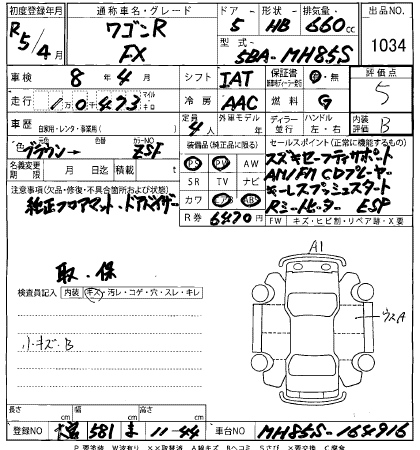 初度登録年月 通称車名・グレード ドア 形状 排気量 出品NO
R5/4月 ワゴンR FX 5 HB 660cc 1034
型式 5BA-MH85S
車検 8年4月 シフト IAT 保証書 有・無 評価点 5
走行 10473 マイル キロ 冷房 AAC 燃料 G
車歴 自家用・レンタ・事業用( ) 定員 4人 外車モデル 年 ディーラー 並行 ハンドル 左・右 内装評価 B
色 ブラウン→ 色替 カラーNO ZSF
装備品(純正品に限る) セールスポイント(正常に機能するもの)
名義変更期限 月 日迄 積載 t
PS PW AW
SR TV ナビ
カワ AB ABS
R券 6470円
スズキセーフティサポート
AM/FM CDプレーヤー
キーレスプッシュスタート
Rヒートヒーター ESP
注意事項(欠品・修復・不具合箇所および状態)
純正フロアマット・ドアバイザー
FW キズ・ヒビ割・リペア跡・X要
取・保
検査員記入 内装 キズ・汚レ・コゲ・穴・スレ・キレ
小キズ・B
A1
ウスA
長さ cm 幅 cm 高さ cm
登録NO 大宮 581 ま 11-44 車台NO MH85S-164916
P要塗装 W波有り XX取替済 A線キズ Bヘコミ Sさび X要交換 C腐食